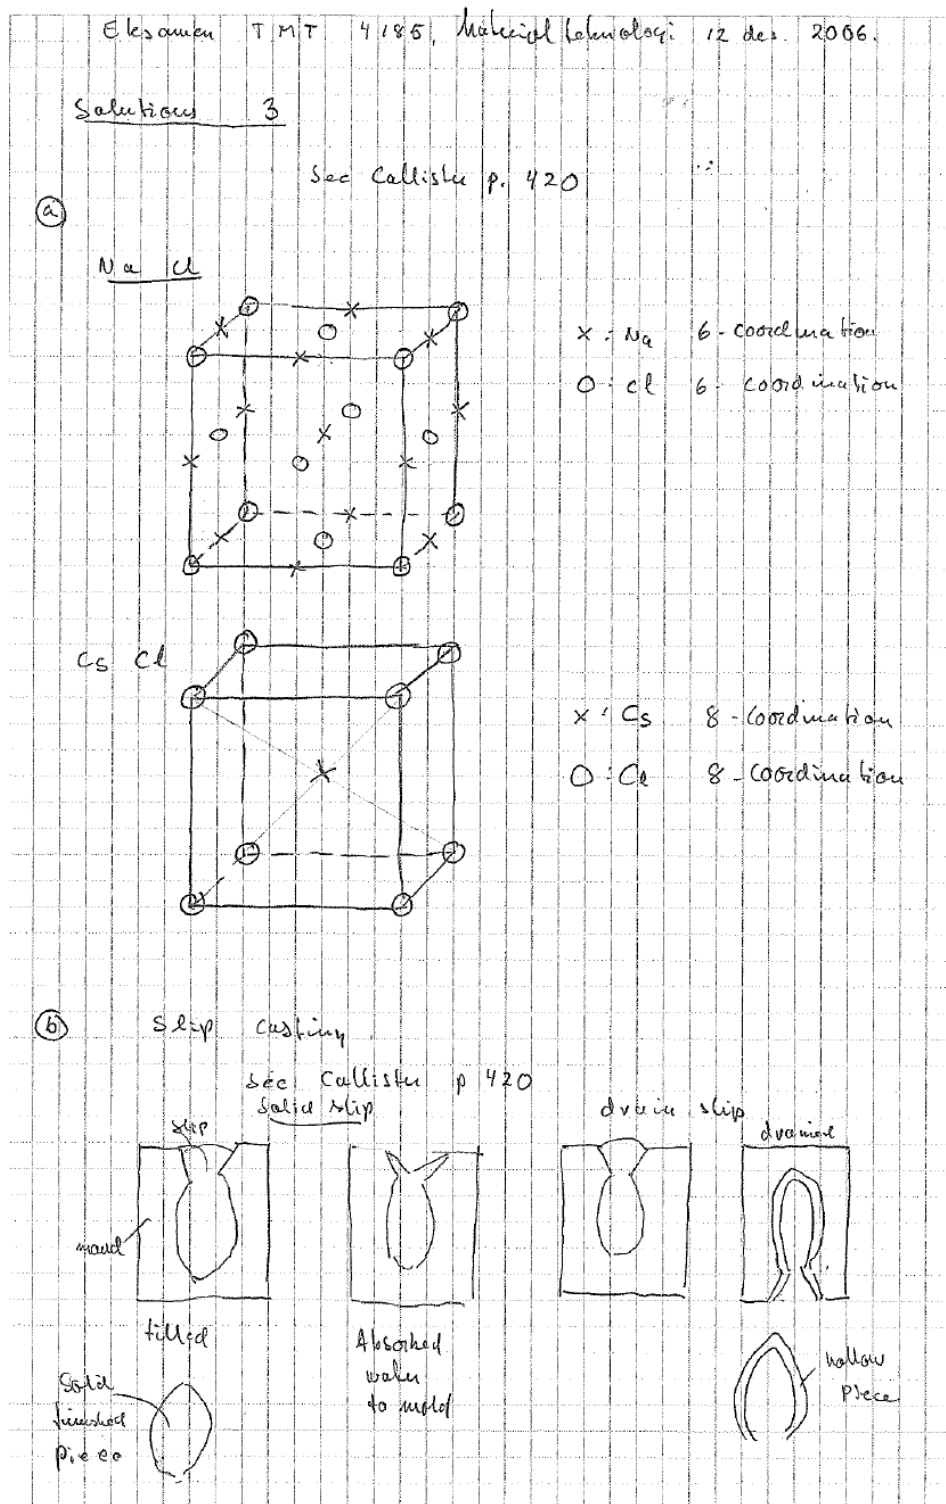 Eksamen TMT 4185, Materialteknologi 12 des. 2006.
Solutions 3
See Callister p. 420
a
Na Cl
x : Na 6-coordination
O : Cl 6-coordination
Cs Cl
x : Cs 8-coordination
O : Cl 8-coordination
b
Slip casting
See Callister p 420
Solid slip
drain slip
slip
drained
filled
Absorbed
water
to mold
hollow
piece
Solid
finished
piece